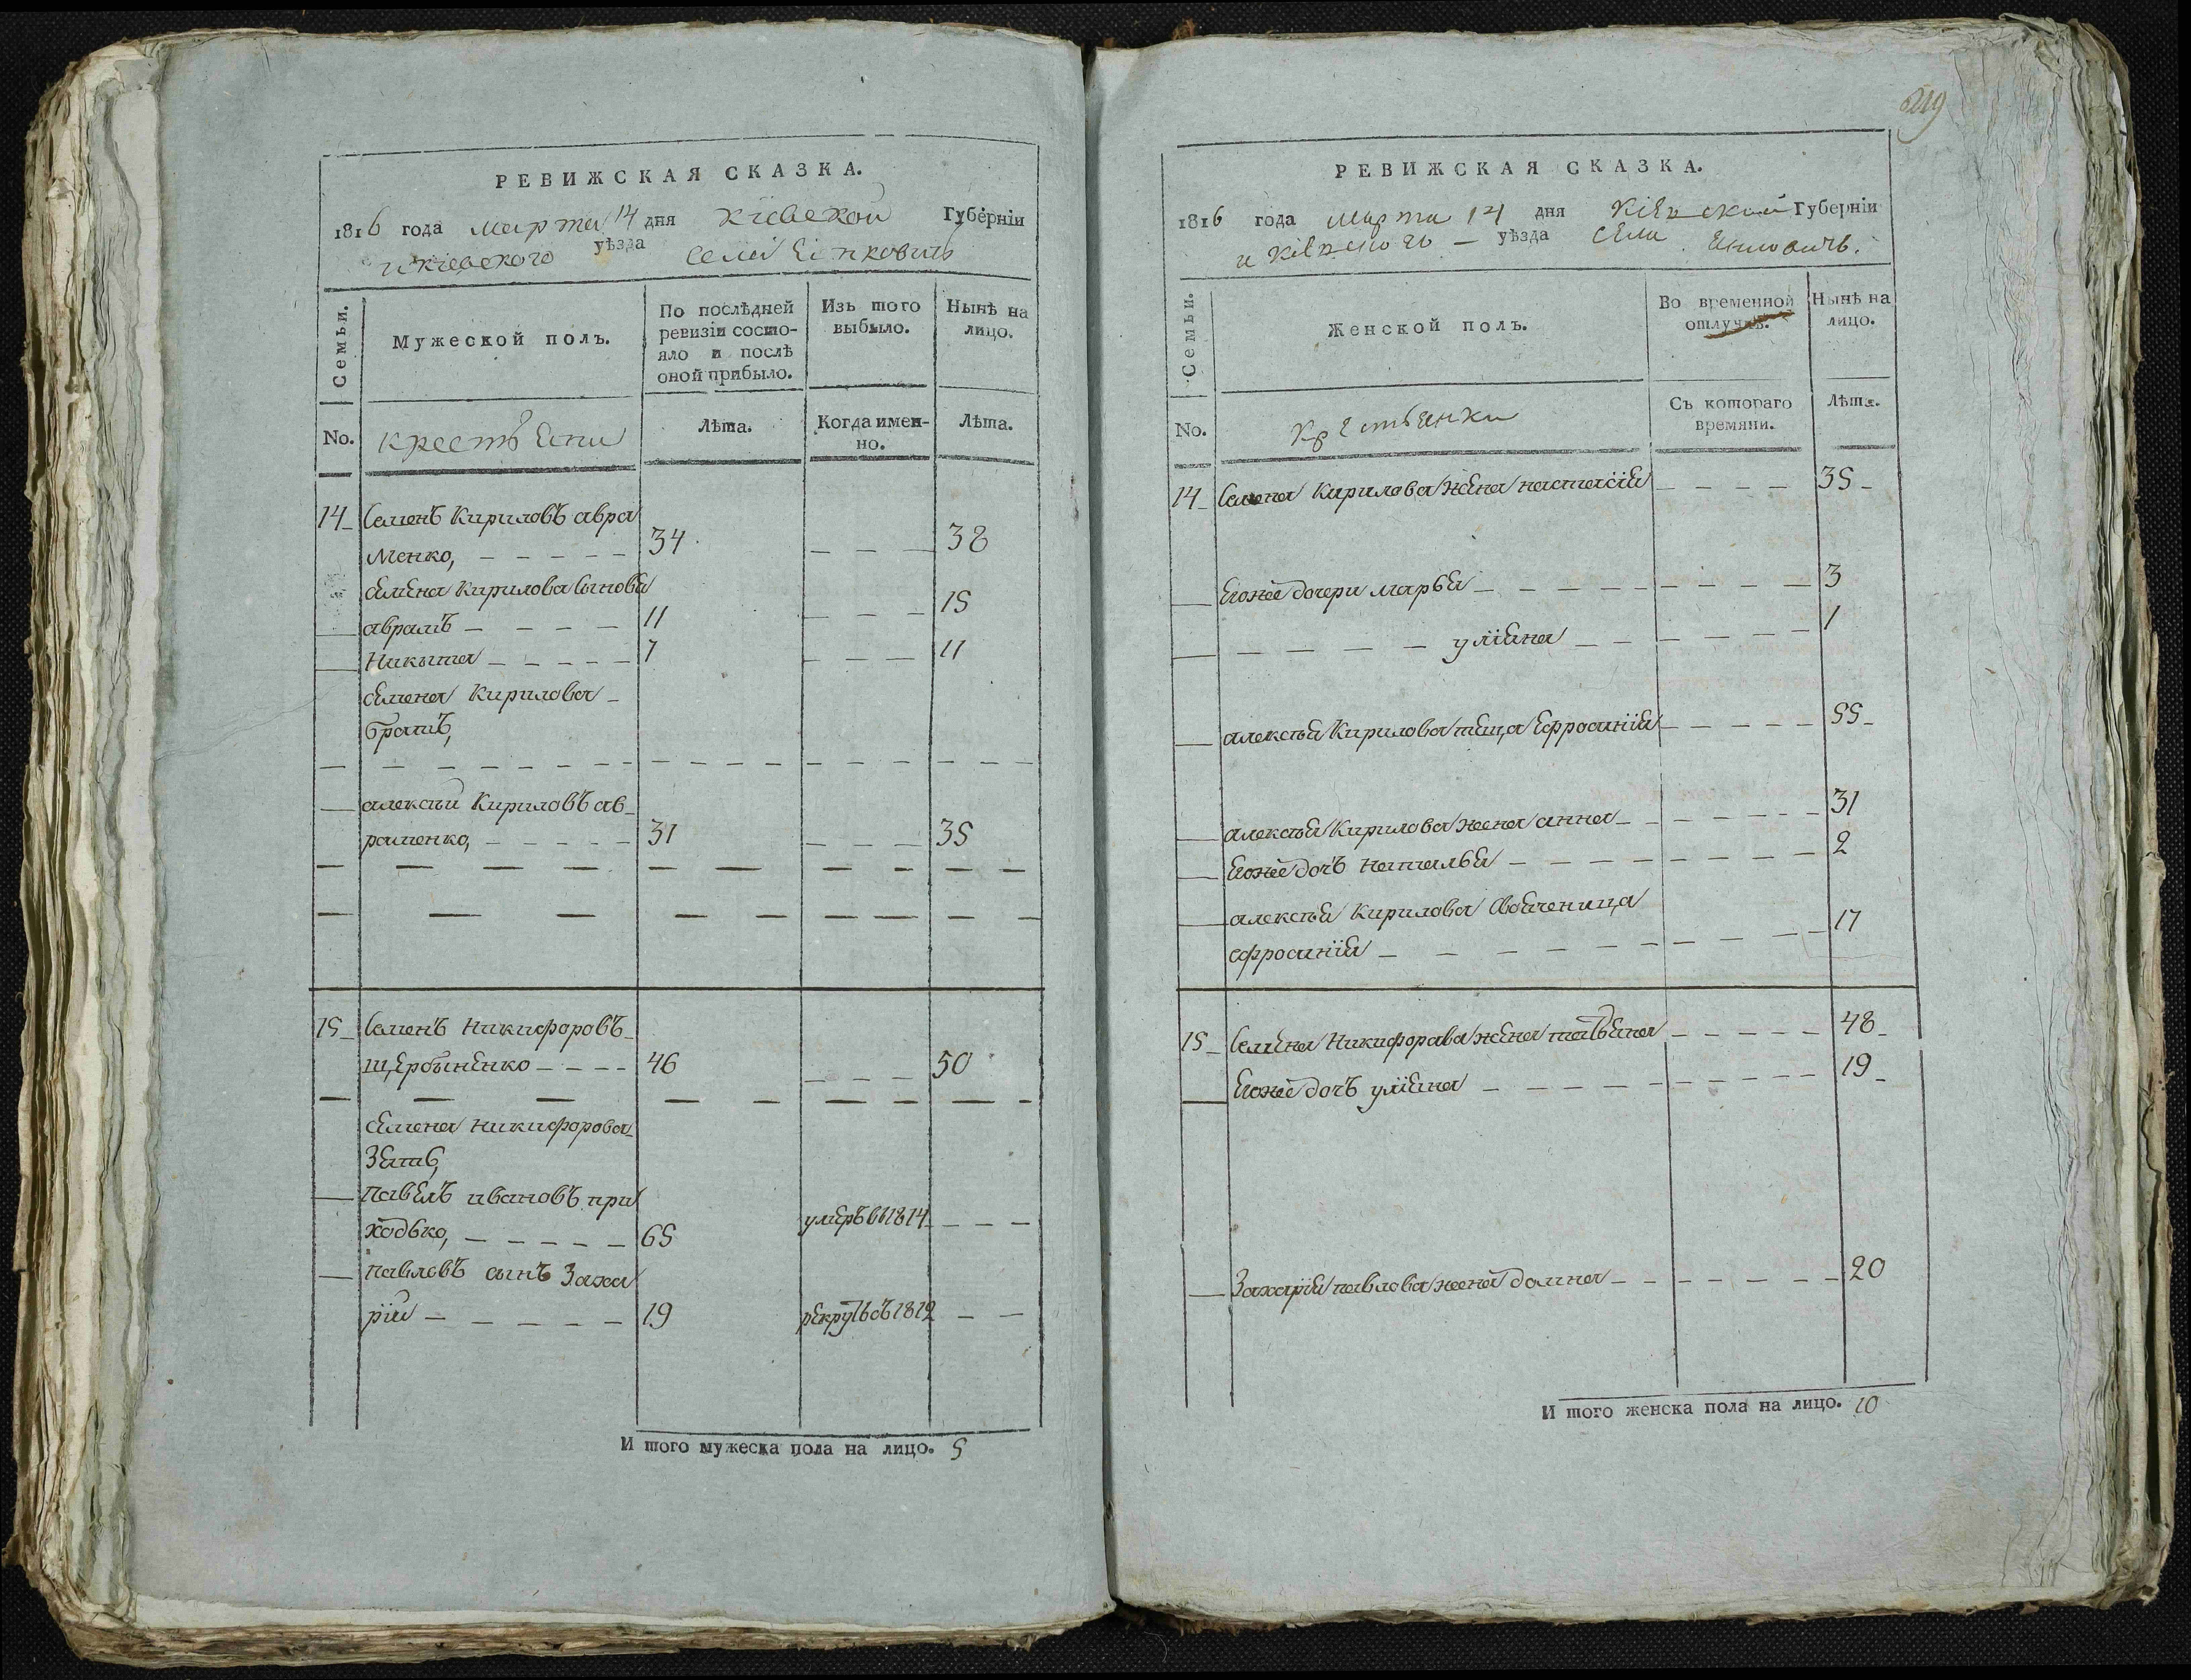 РЕВИЖСКАЯ СКАЗКА.
1816 года марта 14 дня Кіевской Губерніи
и Кіевского уѣзда села
Семьи.
Мужеской полъ.
По послѣдней ревизіи состояло и послѣ оной прибыло.
Изъ того выбыло.
Нынѣ на лицо.
No.
крестьяни
Лѣта.
Когда именно.
Лѣта.
14 Семенъ Кириловъ авра
менко, 34 38
Семена Кирилова сыновя
аврамъ 11 15
Никита 7 11
Семена Кирилова
братъ,
алексѣй Кириловъ ав
раменко, 31 35
15 Семенъ Никифоровъ
щербыненко 46 50
Семена Никифорова
зять,
павелъ ивановъ при
ходько, 65 умеръ въ 1814
павловъ сынъ Заха
рій 19 рекрутъ съ 1812
И того мужеска пола на лицо. 5
219
РЕВИЖСКАЯ СКАЗКА.
1816 года марта 14 дня Кіевской Губерніи
и Кіевского уѣзда села
Семьи.
Женской полъ.
Во временной отлучкѣ.
Нынѣ на лицо.
No.
крестьянки
Съ котораго времяни.
Лѣта.
14 Семена Кирилова жена настасія 35
Егоже дочери марья 3
уліяна 1
алексѣя Кирилова теща Ефросинія 55
алексѣя Кирилова жена анна 31
Егоже дочъ наталья 2
алексѣя Кирилова своячен ица
ефросинія 17
15 Семена Никифорова жена татьяна 48
Егоже дочъ уліяна 19
Захарія павлова жена домна 20
И того женска пола на лицо. 10